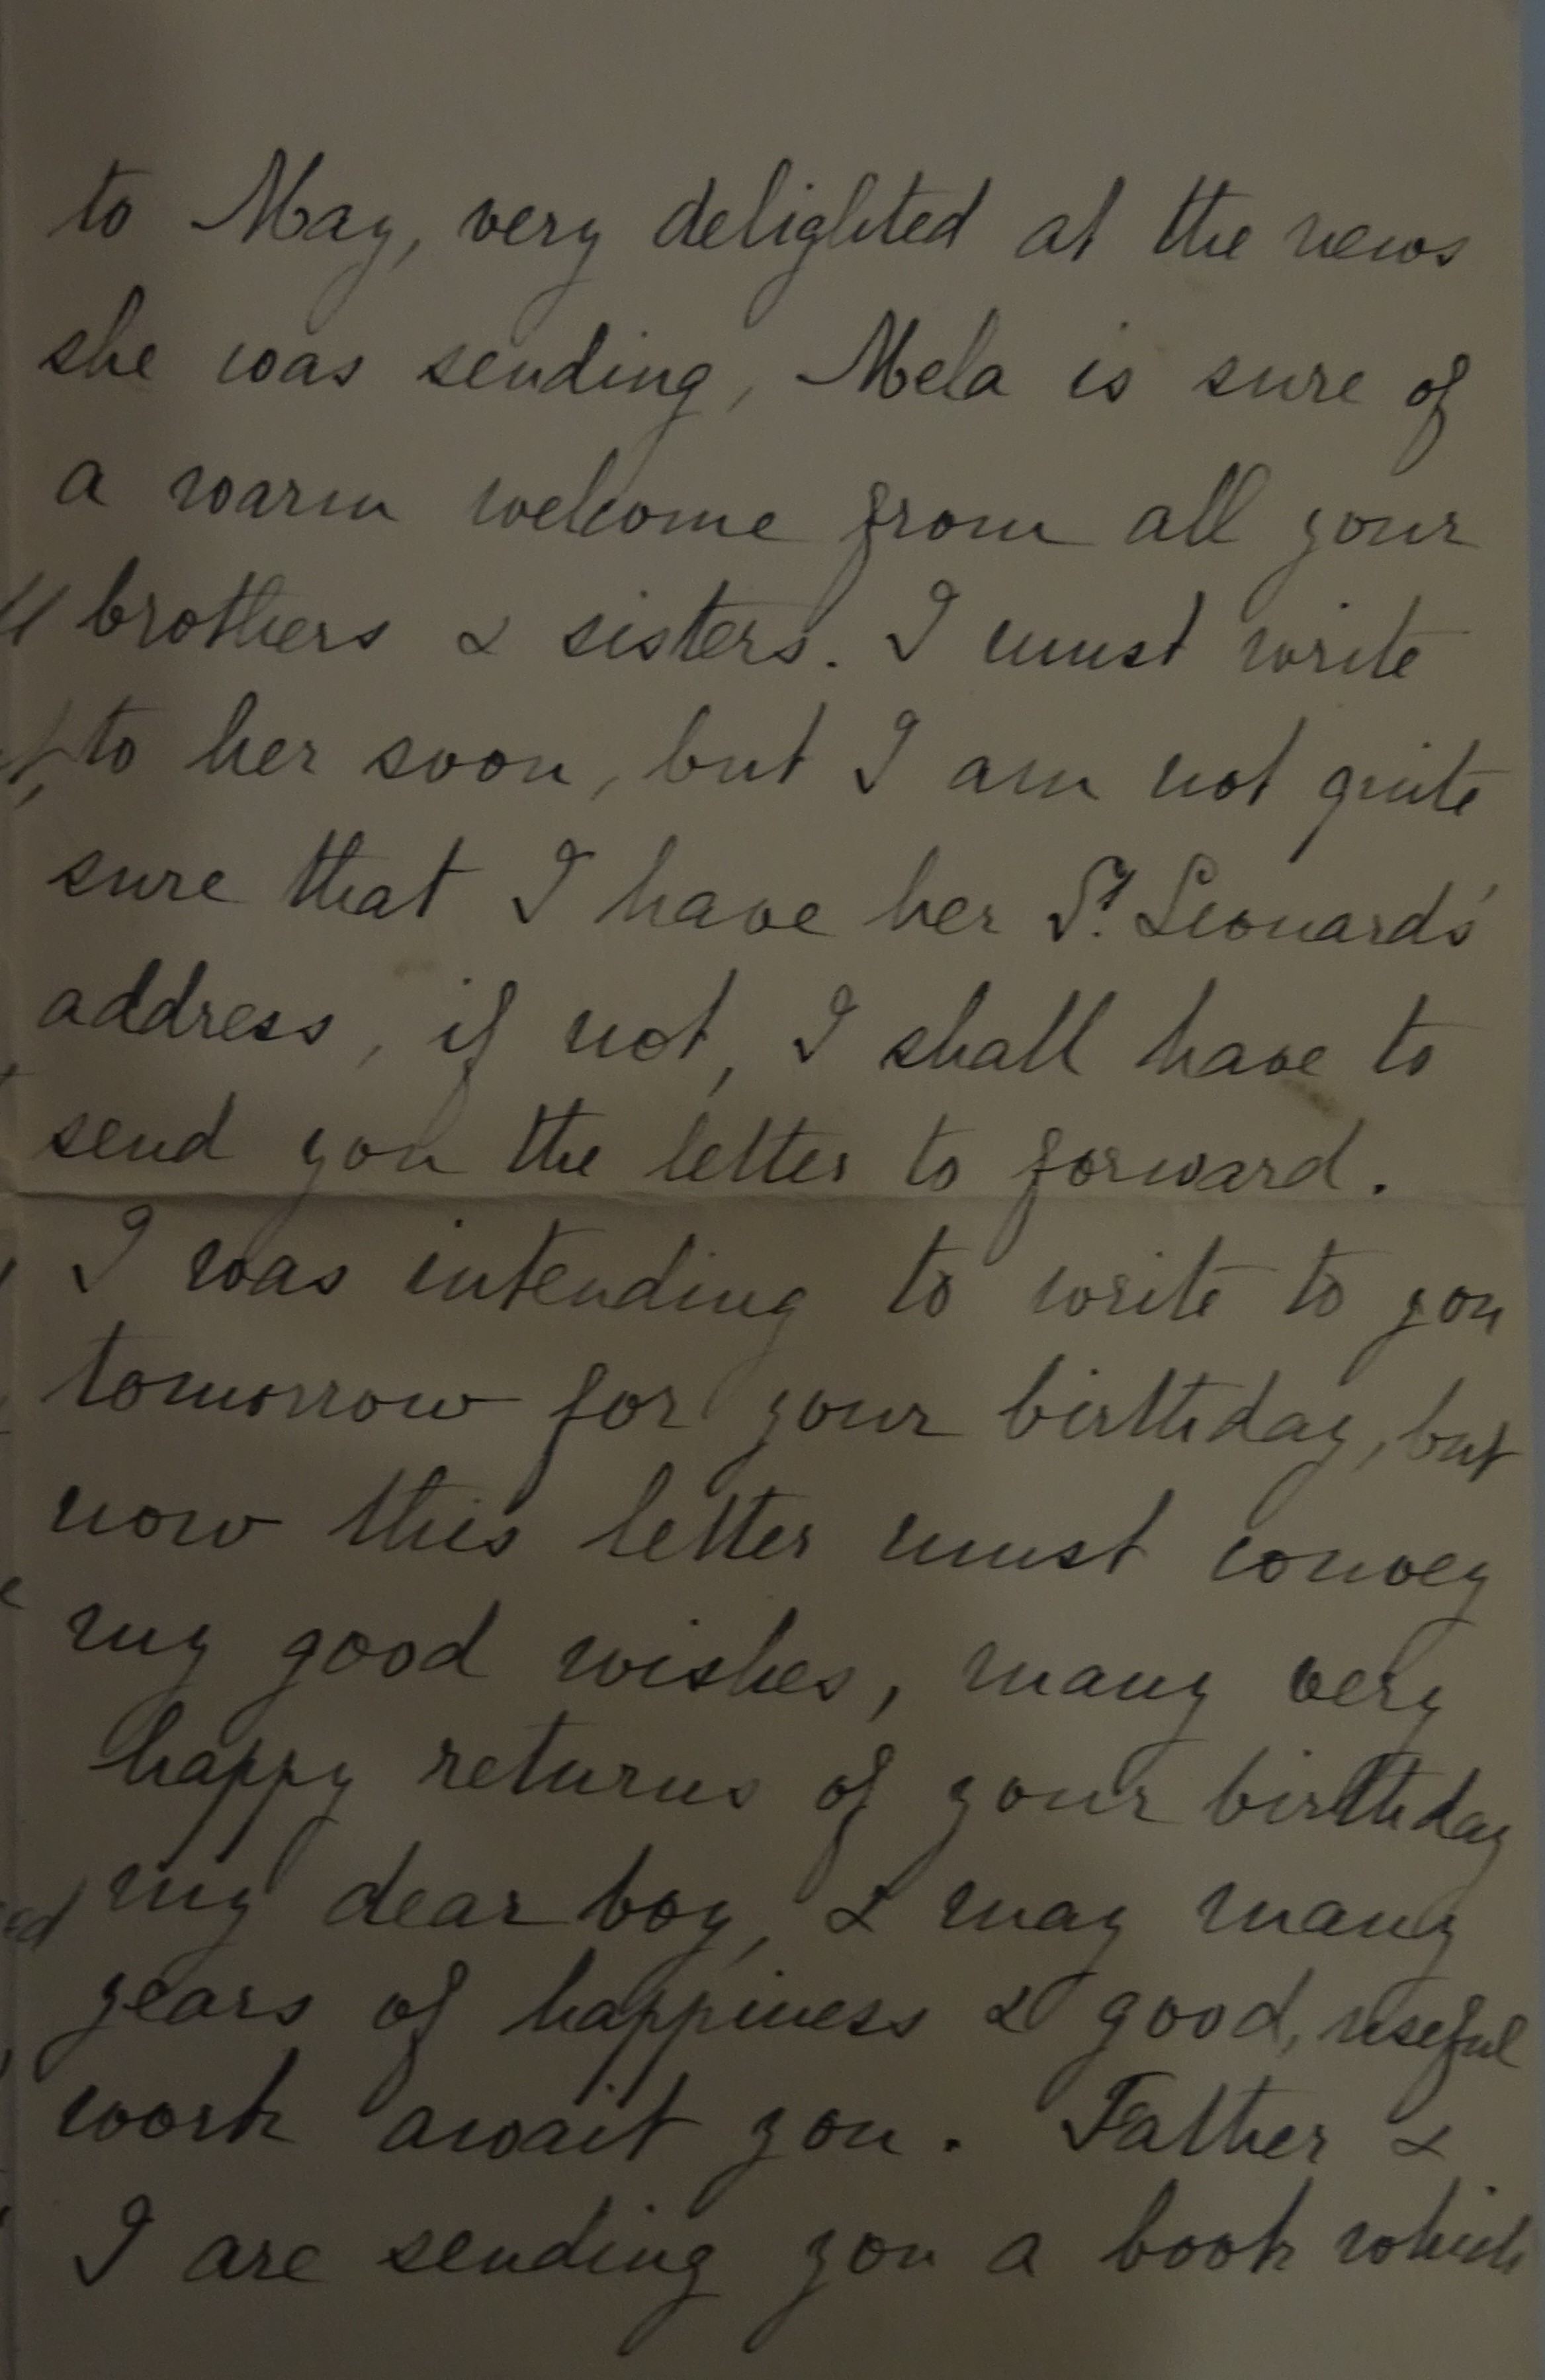 to May, very delighted at the news
she was sending, Mela is sure of
a warm welcome from all your
brothers & sisters. I must write
to her soon, but I am not quite
sure that I have her St. Leonard's
address, if not, I shall have to
send you the letter to forward.
I was intending to write to you
tomorrow for your birthday, but
now this letter must convey
my good wishes, many very
happy returns of your birthday
my dear boy, & may many
years of happiness & good, useful
work await you. Father &
I are sending you a book which